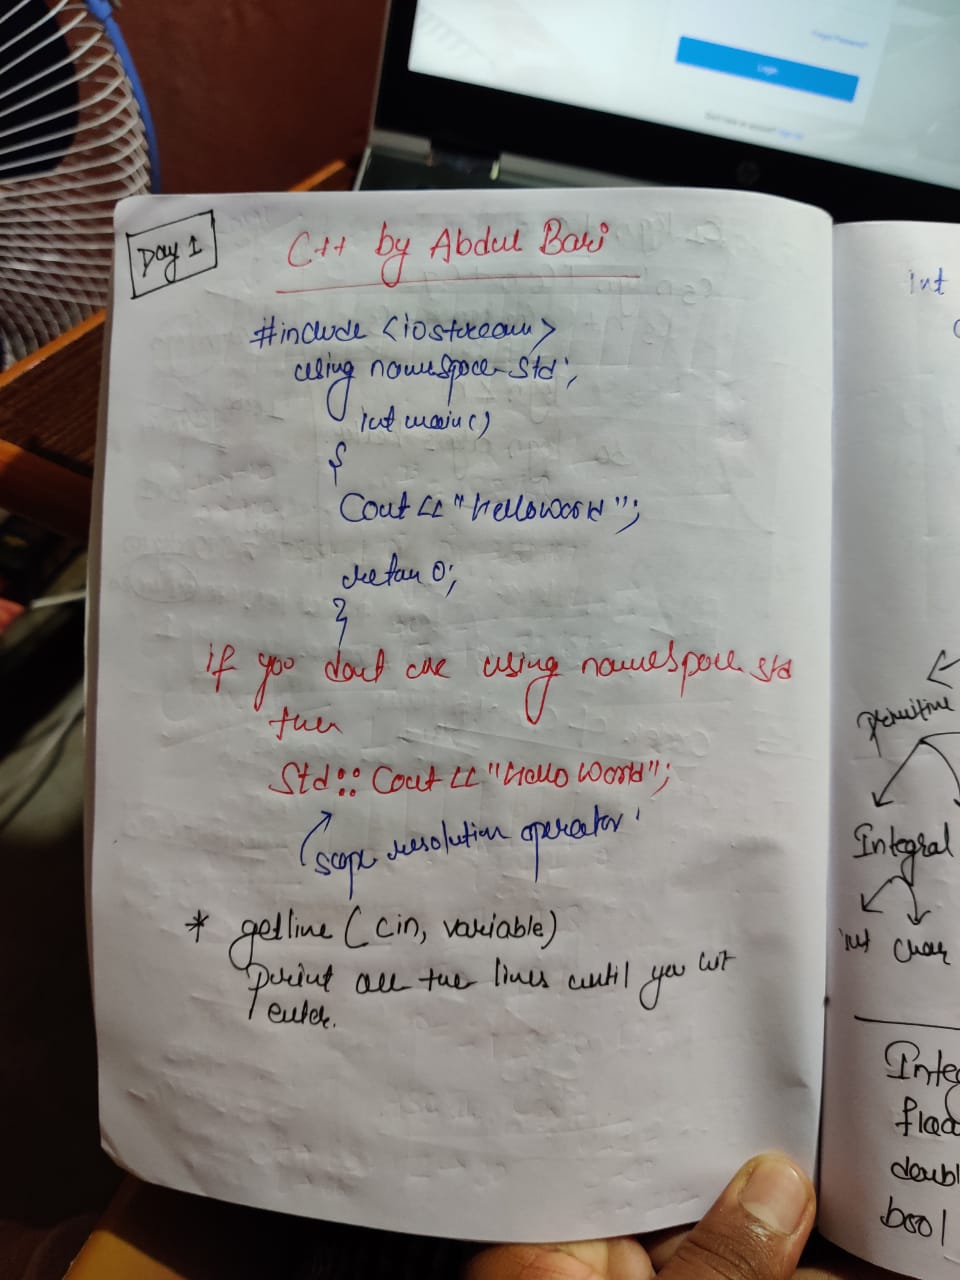 Forgot Password?
Login
Sign up
Day 1
C++ by Abdul Bari
#include <iostream>
using namespace std;
int main()
{
Cout << "Hello World";
return 0;
}
if you dont use using namespace std
then
Std:: Cout << "Hello World";
scope resolution operator
* getline (cin, variable)
print all the lines until you hit
enter.
int
primitive
Integral
int char
Inte
floa
doubl
bool